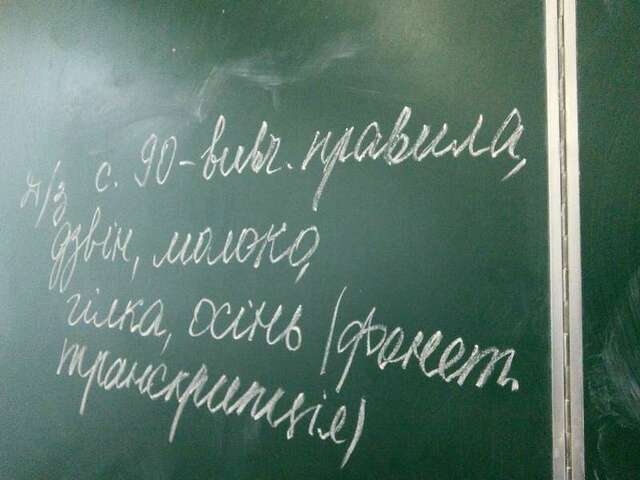 д/з с. 90 - вивч. правила,
дзвін, молоко,
гілка, осінь (фонет.
транскрипція)